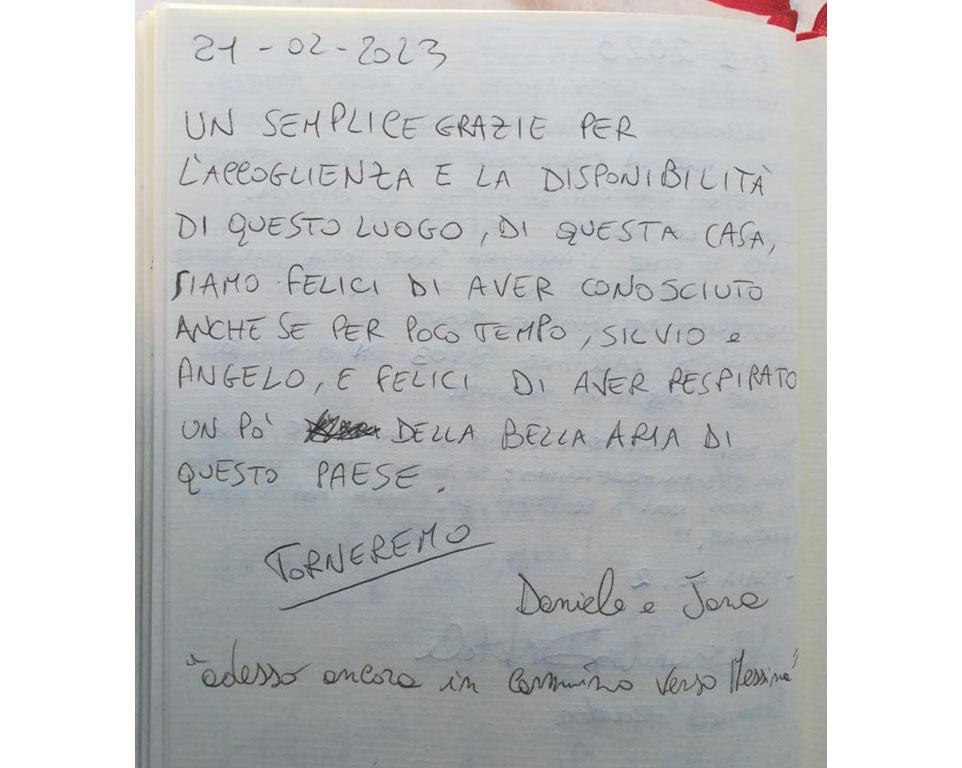 21-02-2023
UN SEMPLICE GRAZIE PER
L'ACCOGLIENZA E LA DISPONIBILITÀ
DI QUESTO LUOGO, DI QUESTA CASA,
SIAMO FELICI DI AVER CONOSCIUTO
ANCHE SE PER POCO TEMPO, SILVIO e
ANGELO, E FELICI DI AVER RESPIRATO
UN PÒ DELLA BELLA ARIA DI
QUESTO PAESE.
TORNEREMO
Daniele e
"adesso ancora in cammino verso Messina"